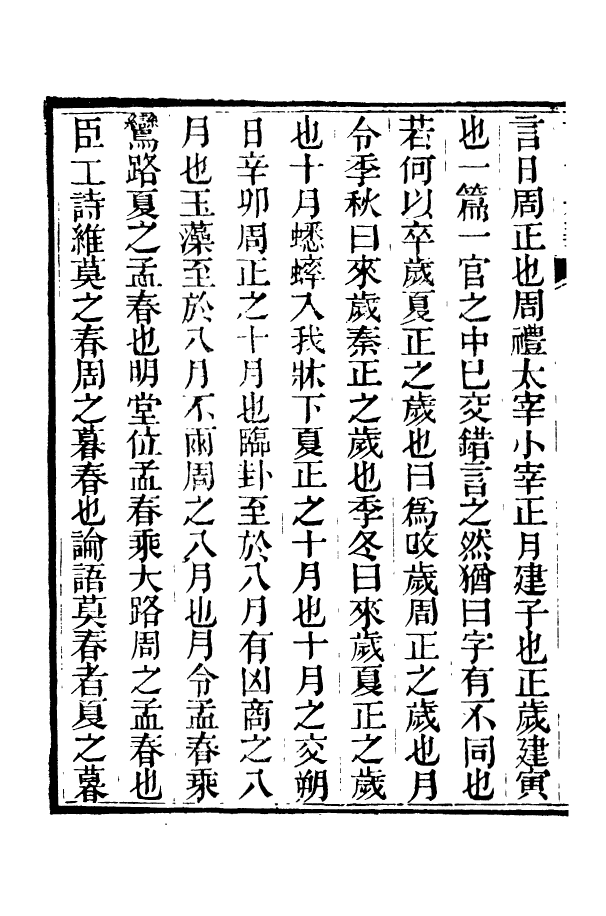 言日周正也周禮太宰小宰正月建子也正歲建寅
也一篇一官之中巳交錯言之然猶曰字有不同也
若何以卒歲夏正之歲也曰爲改歲周正之歲也月
令季秋曰來歲秦正之歲也季冬曰來歲夏正之歲
也十月蟋蟀入我牀下夏正之十月也十月之交朔
日辛卯周正之十月也臨卦至於八月有凶商之八
月也玉藻至於八月不雨周之八月也月令孟春乘
鸞路夏之孟春也明堂位孟春乘大路周之孟春也
臣工詩維莫之春周之暮春也論語莫春者夏之暮